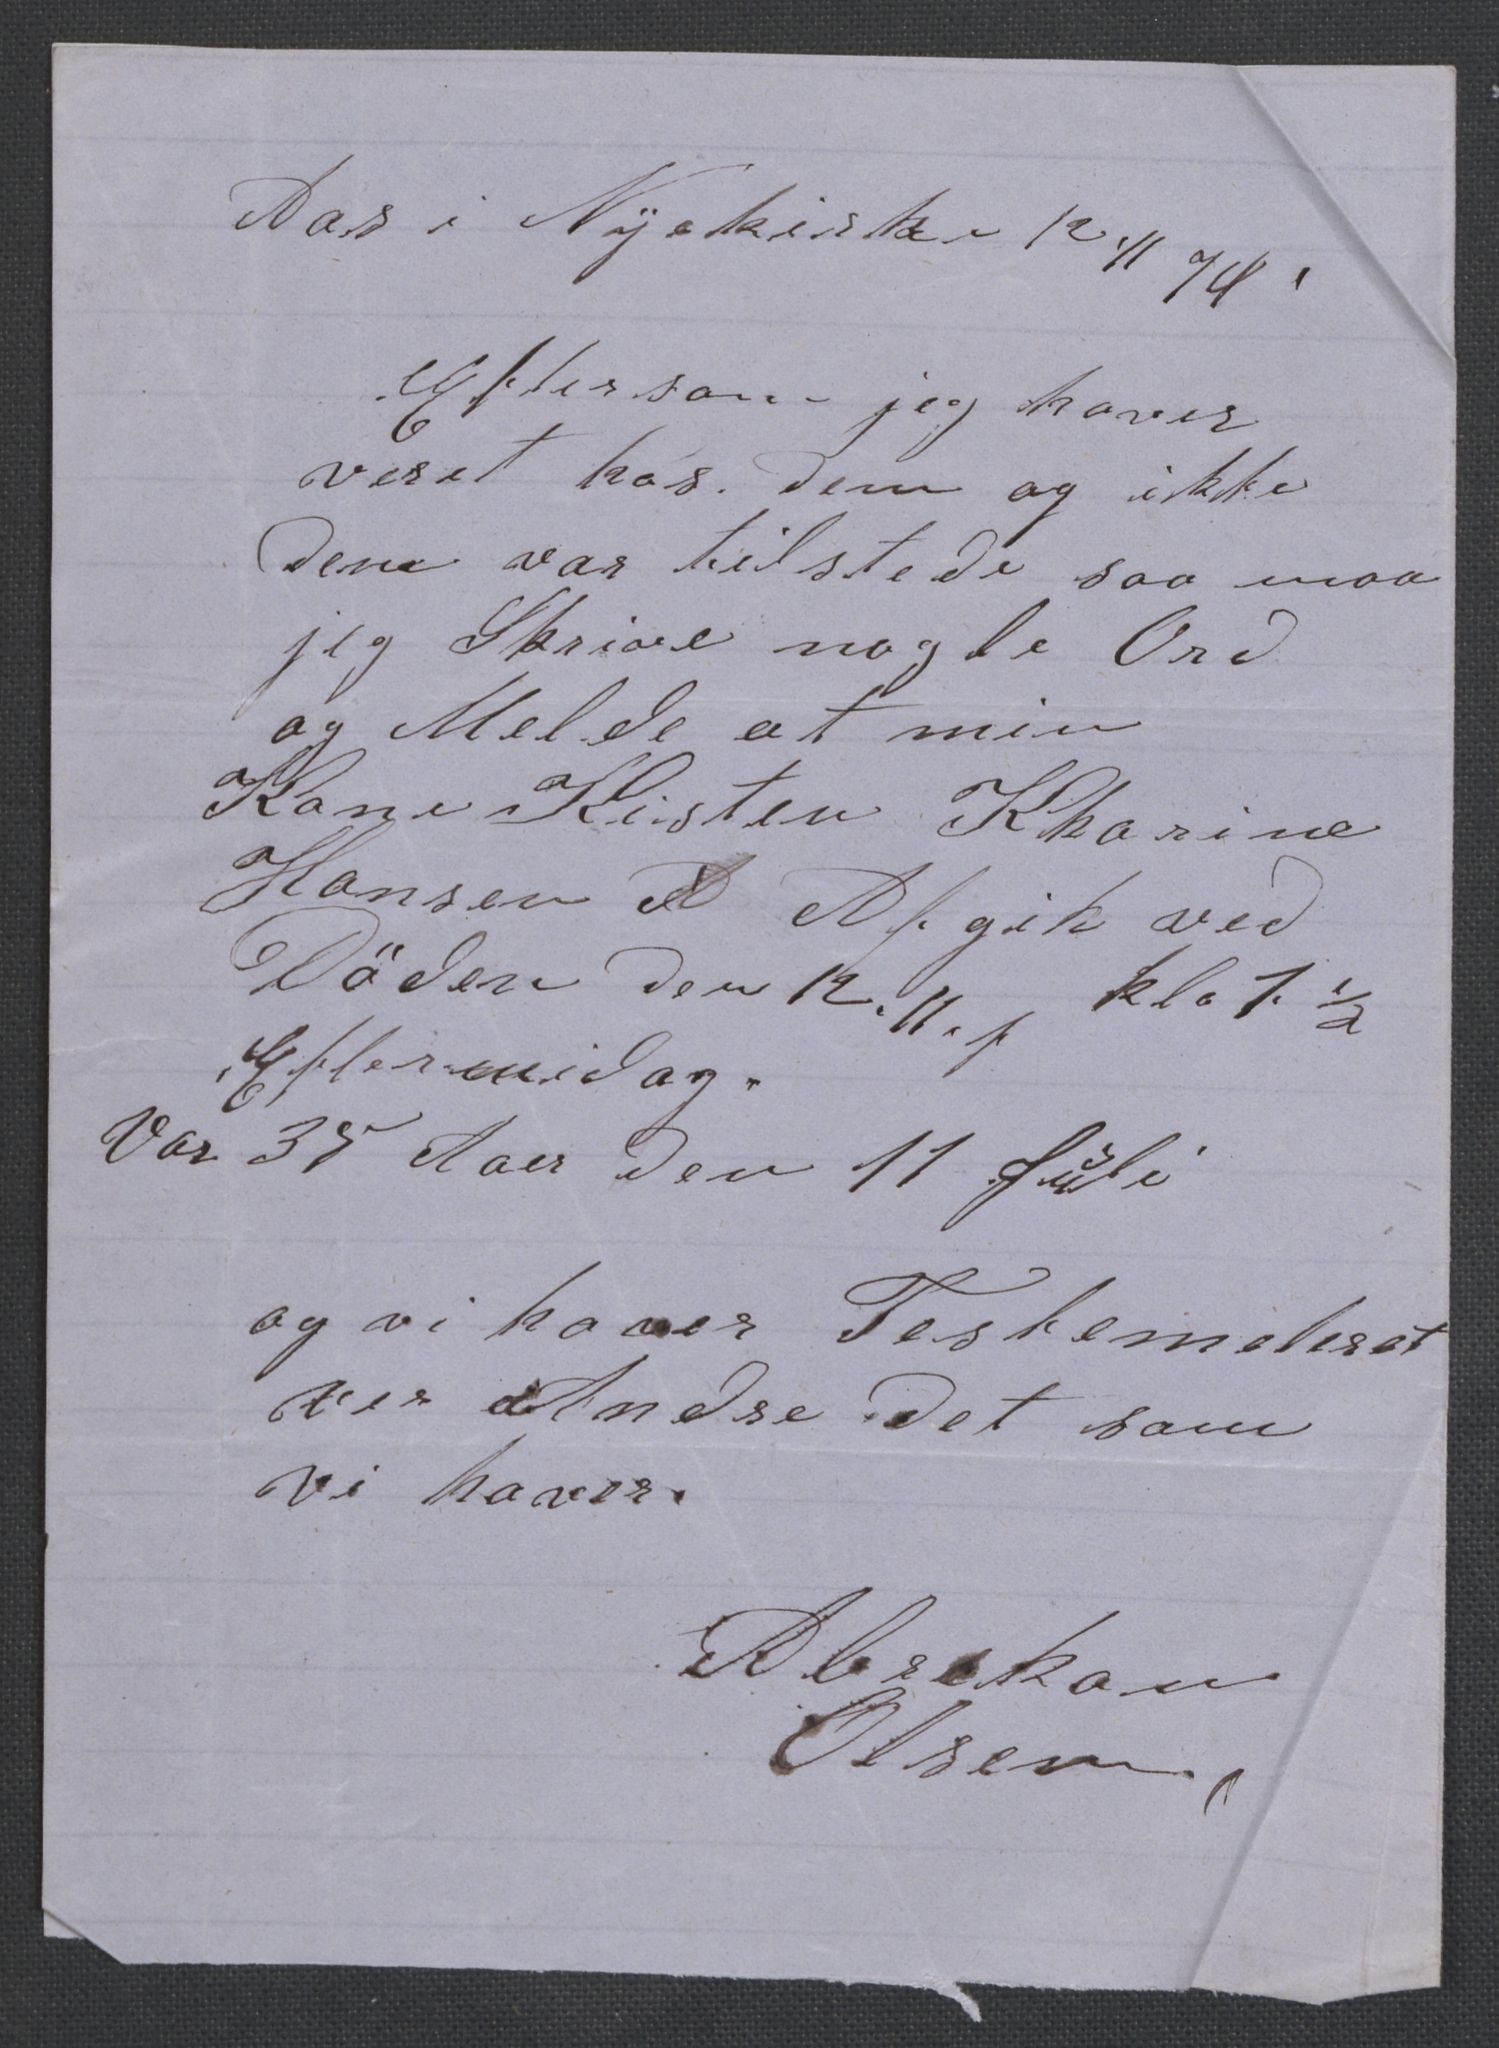 Aas i Nÿekirke 12 11 74
Eftersom jeg haver
veret hos. dem og ikke
dem var tilstede saa maa
jeg Skrive nogle Ord
og Melde at min
Kone Kisten Kharine
Hansen A Afgik ved
Döden den 12. 11. f klo 1. 1/2
Eftermidag.
Var 35 Aaer den 11 Juli
og vi haver Testemeteret
ver Andre det som
vi haver.
Abrahan
Olsen